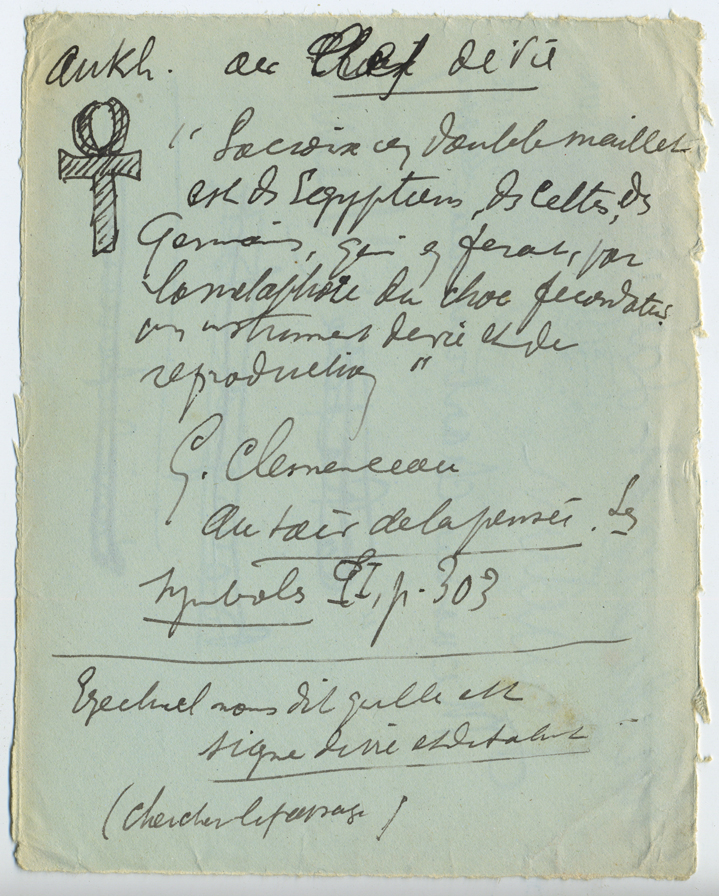 Ankh. ou Clef de Vie
" La croix en double maillet
est des Egyptiens, des Celtes, des
Germains, qui en feront, par
la métaphore du choc fécondateur
un instrument de vie et de
reproduction "
G. Clemenceau
Au soir de la pensée. Les
symboles II, p. 303
Ezechiel nous dit qu'elle est
signe de vie et de salut
(chercher le passage)